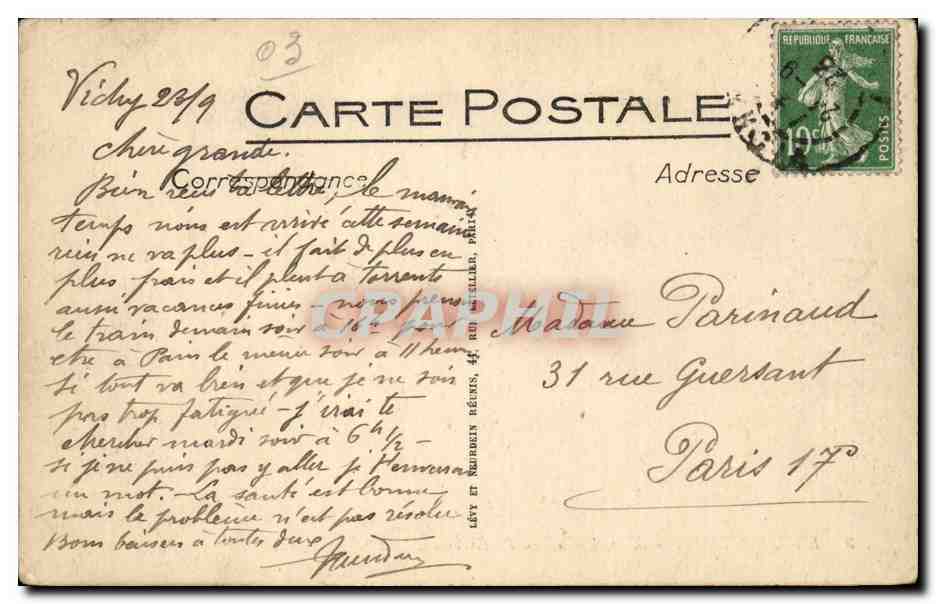 03
Vichy 23/9
CARTE POSTALE
REPUBLIQUE FRANÇAISE
10c
POSTES
chère grande.
Correspondance
Adresse
Bien reçu ta lettre, le mauvais
temps nous est arrivé cette semaine
rien ne va plus - il fait de plus en
plus frais et il pleut à torrents
aussi vacances finies - nous prenons
le train demain soir à 16h pour
etre à Paris le même soir à 11 heures
si tout va bien et que je ne sois
pas trop fatigué - j'irai te
chercher mardi soir à 6h 1/2 -
si je ne puis pas y aller je t'enverrai
un mot. - La santé est bonne
mais le problème n'est pas résolu
Bons baisers a toutes deux
LÉVY ET NEURDEIN RÉUNIS, 44, RUE LETELLIER, PARIS
Madame Parinaud
31 rue Guersant
Paris 17°
CPAPHIL